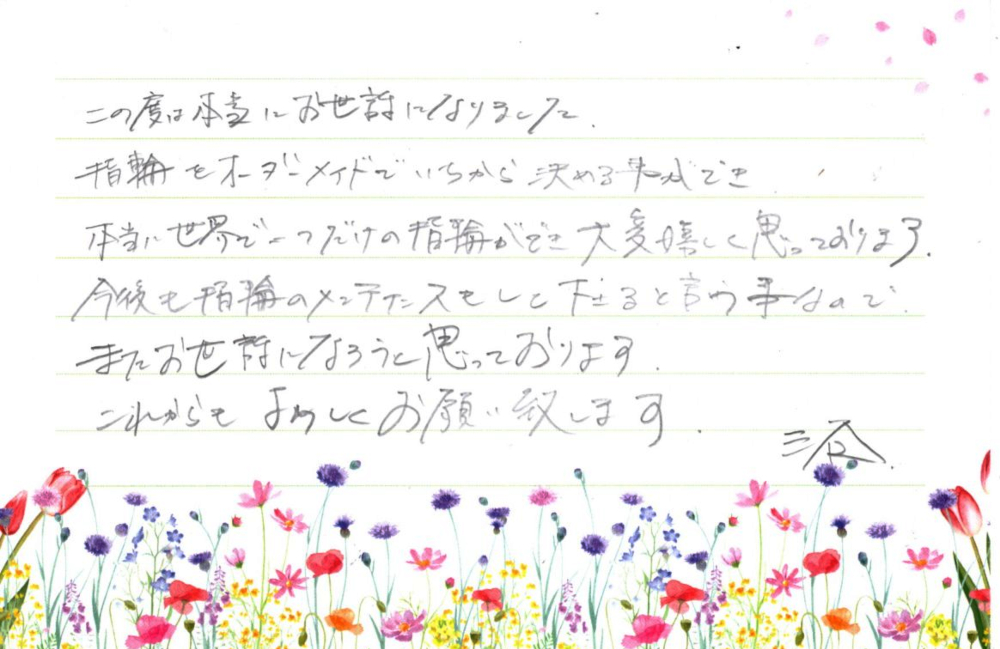 この度は本当にお世話になりました.
指輪をオーダーメイドでいちから決める事ができ
本当に世界で一つだけの指輪ができ大変嬉しく思っております.
今後も指輪のメンテナンスをして下さると言う事なので
またお世話になろうと思っております.
これからもよろしくお願い致します.